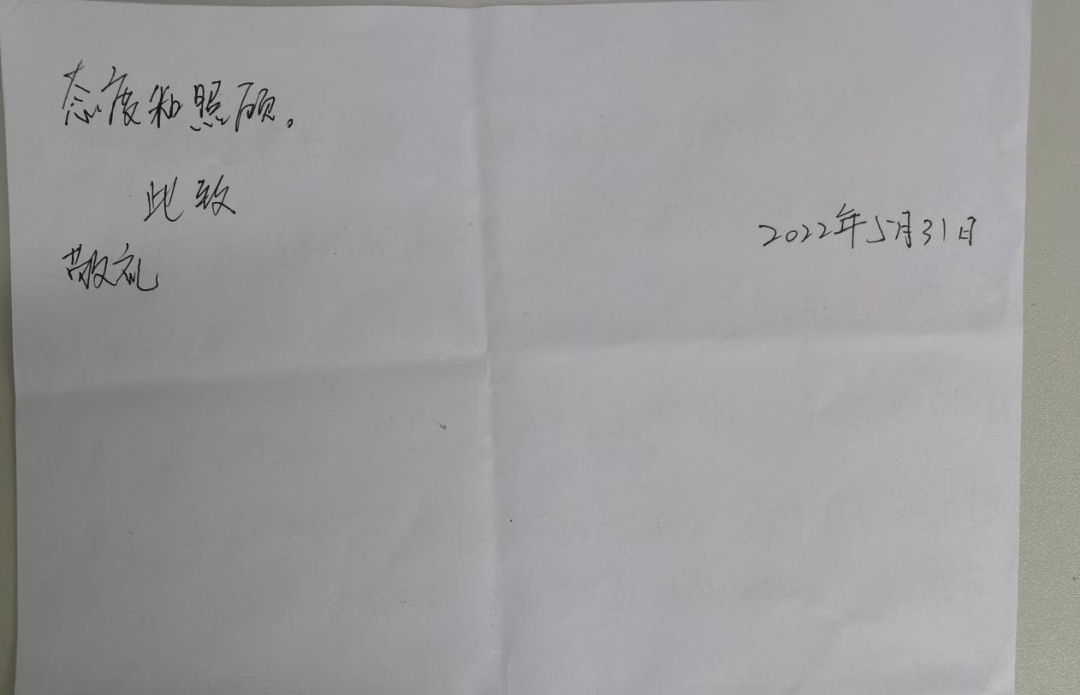 态度和照顾。
此致
2022年5月31日
敬礼